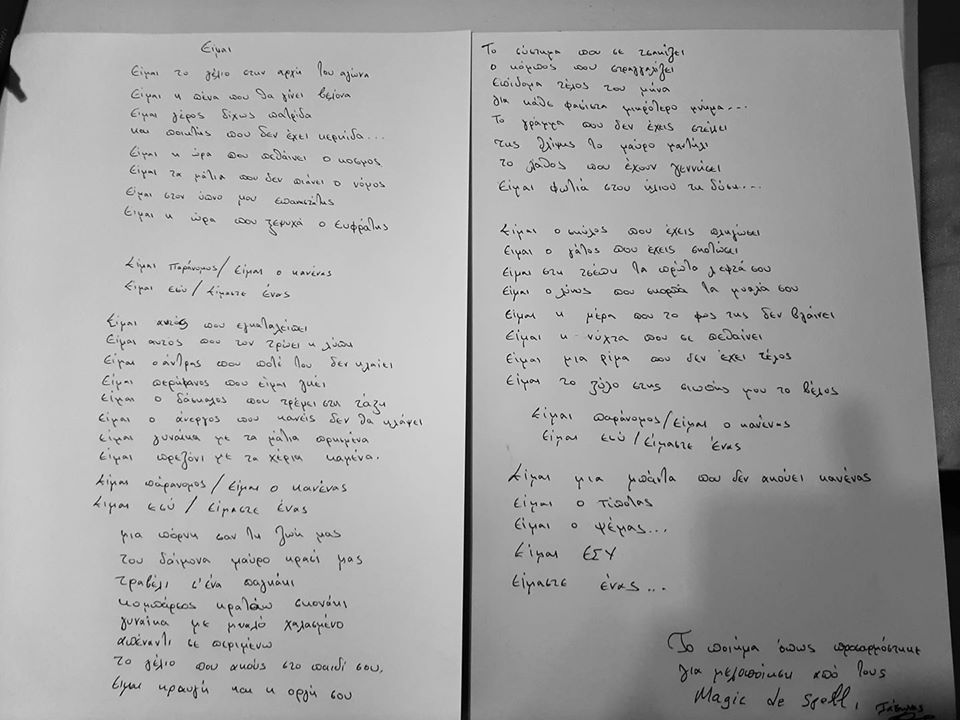 Είμαι
Είμαι το γέλιο στην αρχή του αγώνα
Είμαι κ πένα που θα γίνει βελόνα
Είμαι γέρος δίχως πατρίδα
και ποιητής που δεν έχει κερκίδα...
Είμαι κ ώρα που πεθαίνει ο κόσμος
Είμαι τα μάτια που δεν πιάνει ο νόμος
Είμαι στον ύπνο μου επαναστάτης
Είμαι κ ώρα που ξεψυχά ο Ευφράτης
Είμαι παράνομος/Είμαι ο κανένας
Είμαι εσύ/Είμαστε ένας
Είμαι αυτός που εγκαταλείπει
Είμαι αυτός που τον τρώει κ λύπη
Είμαι ο άντρας που ποτέ του δεν κλαίει
Είμαι περήφανος που είμαι γκέι
Είμαι ο δάσκαλος που τρέμει στη τάξη
Είμαι ο άνεργος που κανείς δεν θα κλάψει
Είμαι γυναίκα με τα μάτια πρησμένα
Είμαι πρεζόνι με τα χέρια καμένα.
Είμαι παράνομος/Είμαι ο κανένας
Είμαι εσύ/είμαστε ένας
μια πόρνη σαν τη ζωή μας
του δαίμονα μαύρο κρασί μας
τραβέλι σ'ένα παγκάκι
κομπάρσος κρατάω σκονάκι
γυναίκα με μυαλό χαλασμένο
απέναντι σε περιμένω
το γέλιο που ακούς στο παιδί σου,
Είμαι κραυγή και κ οργή σου
Το σύστημα που σε τσακίζει
ο κόμπος που στραγγαλίζει
Επίδομα τέλος του μήνα
για κάθε φασίστα μικρότερο μνήμα...
Το γράμμα που δεν έχεις στείλει
της θλίψης το μαύρο μαντήλι
το λάθος που έχουν γεννήσει
Είμαι φωτιά στου ήλιου τη δύση...
Είμαι ο σκύλος που έχεις πληγώσει
Είμαι ο γάτος που έχεις σκοτώσει
Είμαι στη τσέπη τα πρώτα λεφτά σου
Είμαι ο λύκος που σκορπά τα μυαλά σου
Είμαι κ μέρα που το φως της δεν βγαίνει
Είμαι κ νύχτα που σε πεθαίνει
Είμαι μια ρίμα που δεν έχει τέλος
Είμαι το ξύλο στης σιωπής μου το βέλος
Είμαι παράνομος/Είμαι ο κανένας
Είμαι εσύ/Είμαστε ένας
Είμαι μια μπάντα που δεν ακούει κανένας
Είμαι ο τίποτας
Είμαι ο ψέμας...
Είμαι ΕΣΥ
Είμαστε ένας...
Το ποίημα όπως προσαρμόστηκε
για μελοποίηση από τους
Magic de Spell,